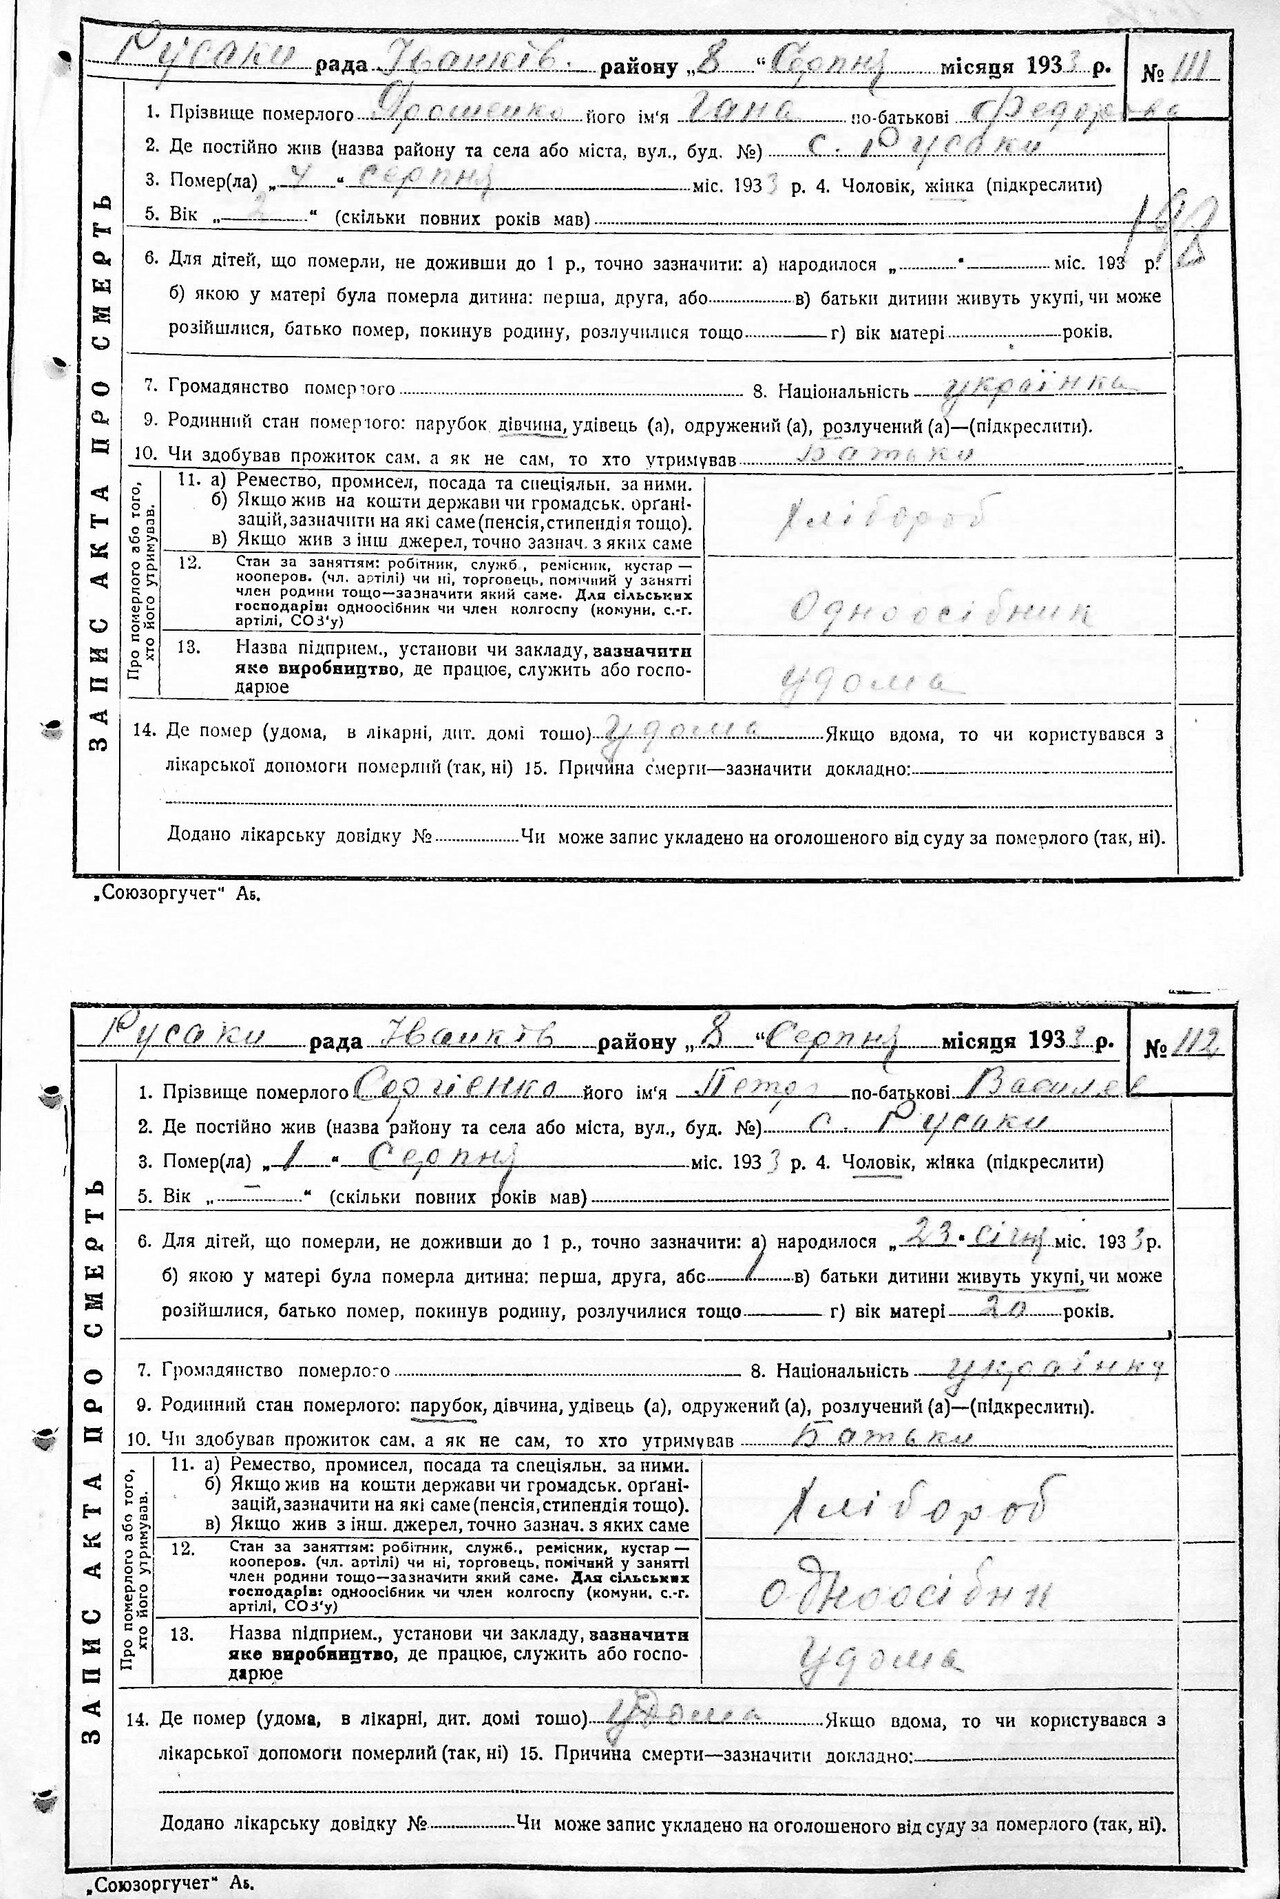 Русаки рада Іванків. району „8“ Серпня місяця 1933 р. № 111
1. Прізвище померлого Ярошенко його ім'я Гана по-батькові Федоровна
2. Де постійно жив (назва району та села або міста, вул., буд. №) с. Русаки
3. Помер(ла) „4“ серпня міс. 1933 р. 4. Чоловік, жінка (підкреслити)
5. Вік „2“ (скільки повних років мав)
198
6. Для дітей, що померли, не доживши до 1 р., точно зазначити: а) народилося „ “ міс. 193 р.
б) якою у матері була померла дитина: перша, друга, або в) батьки дитини живуть укупі, чи може
розійшлися, батько помер, покинув родину, розлучилися тощо г) вік матері років.
7. Громадянство померлого 8. Національність українка
9. Родинний стан померлого: парубок дівчина, удівець (а), одружений (а), розлучений (а)—(підкреслити).
10. Чи здобував прожиток сам, а як не сам, то хто утримував Батьки
11. а) Ремество, промисел, посада та спеціяльн. за ними.
б) Якщо жив на кошти держави чи громадськ. органі-
зацій, зазначити на які саме (пенсія, стипендія тощо).
в) Якщо жив з інш джерел, точно зазнач. з яких саме
Хлібороб
12. Стан за заняттям: робітник, служб., ремісник, кустар —
кооперов. (чл. артілі) чи ні, торговець, помічний у занятті
член родини тощо—зазначити який саме. Для сільських
господарів: одноосібник чи член колгоспу (комуни, с.-г.
артілі, СОЗ'у)
Одноосібник
13. Назва підприєм., установи чи закладу, зазначити
яке виробництво, де працює, служить або госпо-
дарює
удома
Про померлого або того,
хто його утримував.
14. Де помер (удома, в лікарні, дит. домі тошо) удома Якщо вдома, то чи користувався з
лікарської допомоги померлий (так, ні) 15. Причина смерти—зазначити докладно:
Додано лікарську довідку № Чи може запис укладено на оголошеного від суду за померлого (так, ні).
ЗАПИС АКТА ПРО СМЕРТЬ
„Союзоргучет“ А5.
Русаки рада Іванків району „8“ Серпня місяця 1933 р. № 112
1. Прізвище померлого Сергієнко його ім'я Петро по-батькові Василев
2. Де постійно жив (назва району та села або міста, вул., буд. №) с. Русаки
3. Помер(ла) „1“ Серпня міс. 1933 р. 4. Чоловік, жінка (підкреслити)
5. Вік „—“ (скільки повних років мав)
6. Для дітей, що померли, не доживши до 1 р., точно зазначити: а) народилося „23“ січня міс. 1933 р.
б) якою у матері була померла дитина: перша, друга, або 1 в) батьки дитини живуть укупі, чи може
розійшлися, батько помер, покинув родину, розлучилися тощо г) вік матері 20 років.
7. Громадянство померлого 8. Національність українка
9. Родинний стан померлого: парубок, дівчина, удівець (а), одружений (а), розлучений (а)—(підкреслити).
10. Чи здобував прожиток сам, а як не сам, то хто утримував Батьки
11. а) Ремество, промисел, посада та спеціяльн. за ними.
б) Якщо жив на кошти держави чи громадськ. органі-
зацій, зазначити на які саме (пенсія, стипендія тощо).
в) Якщо жив з інш. джерел, точно зазнач. з яких саме
Хлібороб
12. Стан за заняттям: робітник, служб., ремісник, кустар —
кооперов. (чл. артілі) чи ні, торговець, помічний у занятті
член родини тощо—зазначити який саме. Для сільських
господарів: одноосібник чи член колгоспу (комуни, с.-г.
артілі, СОЗ'у)
одноосібник
13. Назва підприєм., установи чи закладу, зазначити
яке виробництво, де працює, служить або госпо-
дарює
Удома
Про померлого або того,
хто його утримував.
14. Де помер (удома, в лікарні, дит. домі тошо) удома Якщо вдома, то чи користувався з
лікарської допомоги померлий (так, ні) 15. Причина смерти—зазначити докладно:
Додано лікарську довідку № Чи може запис укладено на оголошеного від суду за померлого (так, ні).
ЗАПИС АКТА ПРО СМЕРТЬ
„Союзоргучет“ А5.